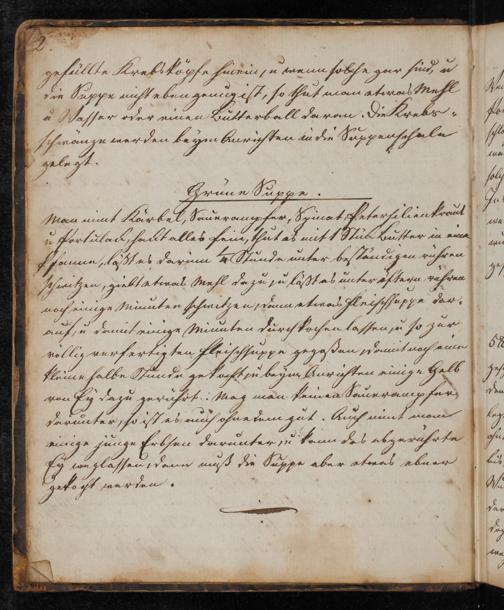 2.
gefüllte Krebsköpfe hinein, u wenn solche gar sind, u
die Suppe nicht eben genug ist, so thut man etwas Mehl
u Wasser oder einen Butterball daran. Die Krebs-
schwänze werden beym Anrichten in die Suppenschale
gelegt.
Grüne Suppe.
Man nimt Kärbel, Sauerampfer, Spinat, Petersilienkraut
u Portulac, hackt alles fein, thut es mit 1 Stück Butter in eine
Pfanne, läßt es darin ¼ Stunde unter beständigen rühren
schwitzen, giebt etwas Mehl dazu, u läßt es unter öftern rühren
noch einige Minuten schwitzen, dann etwas Fleischsuppe dar-
auf, u damit einige Minuten durchkochen lassen, u so zur
völlig verfertigten Fleischsuppe gegoßen, damit noch eine
kleine halbe Stunde gekocht, u beym Anrichten einige Gelb
von Ey dazu gerührt. Mag man keinen Sauerampfer
darunter, so ist es auch ohnedem gut. Auch nimt man
einige junge Erbsen darunter, u kann das abgerührte
Ey weglassen, dann muß die Suppe aber etwas ebner
gekocht werden.